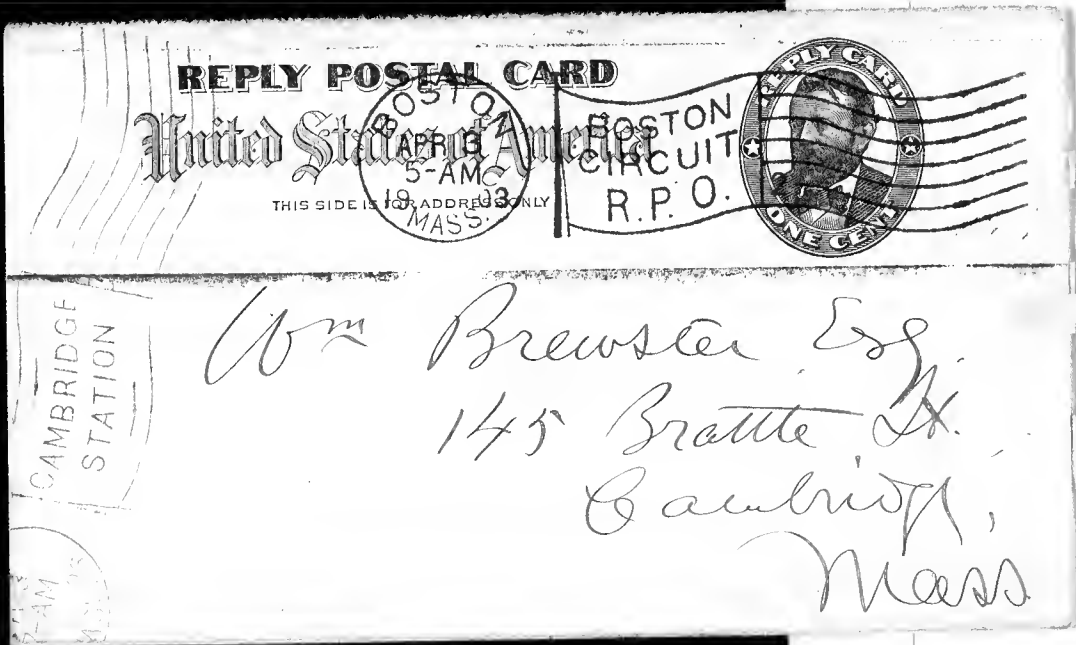 REPLY POSTAL CARD
United States of America
THIS SIDE IS FOR ADDRESS ONLY
BOSTON
APR 13
5-AM
19 03
MASS.
BOSTON
CIRCUIT
R.P.O.
REPLY CARD
ONE CENT
CAMBRIDGE
STATION
7-AM
Wm Brewster Esq.
145 Brattle St.
Cambridge,
Mass.